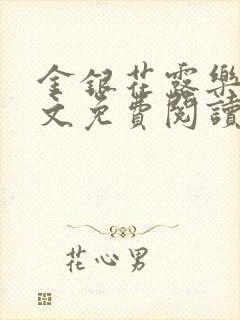 金銀花露樂
文免費閱讀
花心男